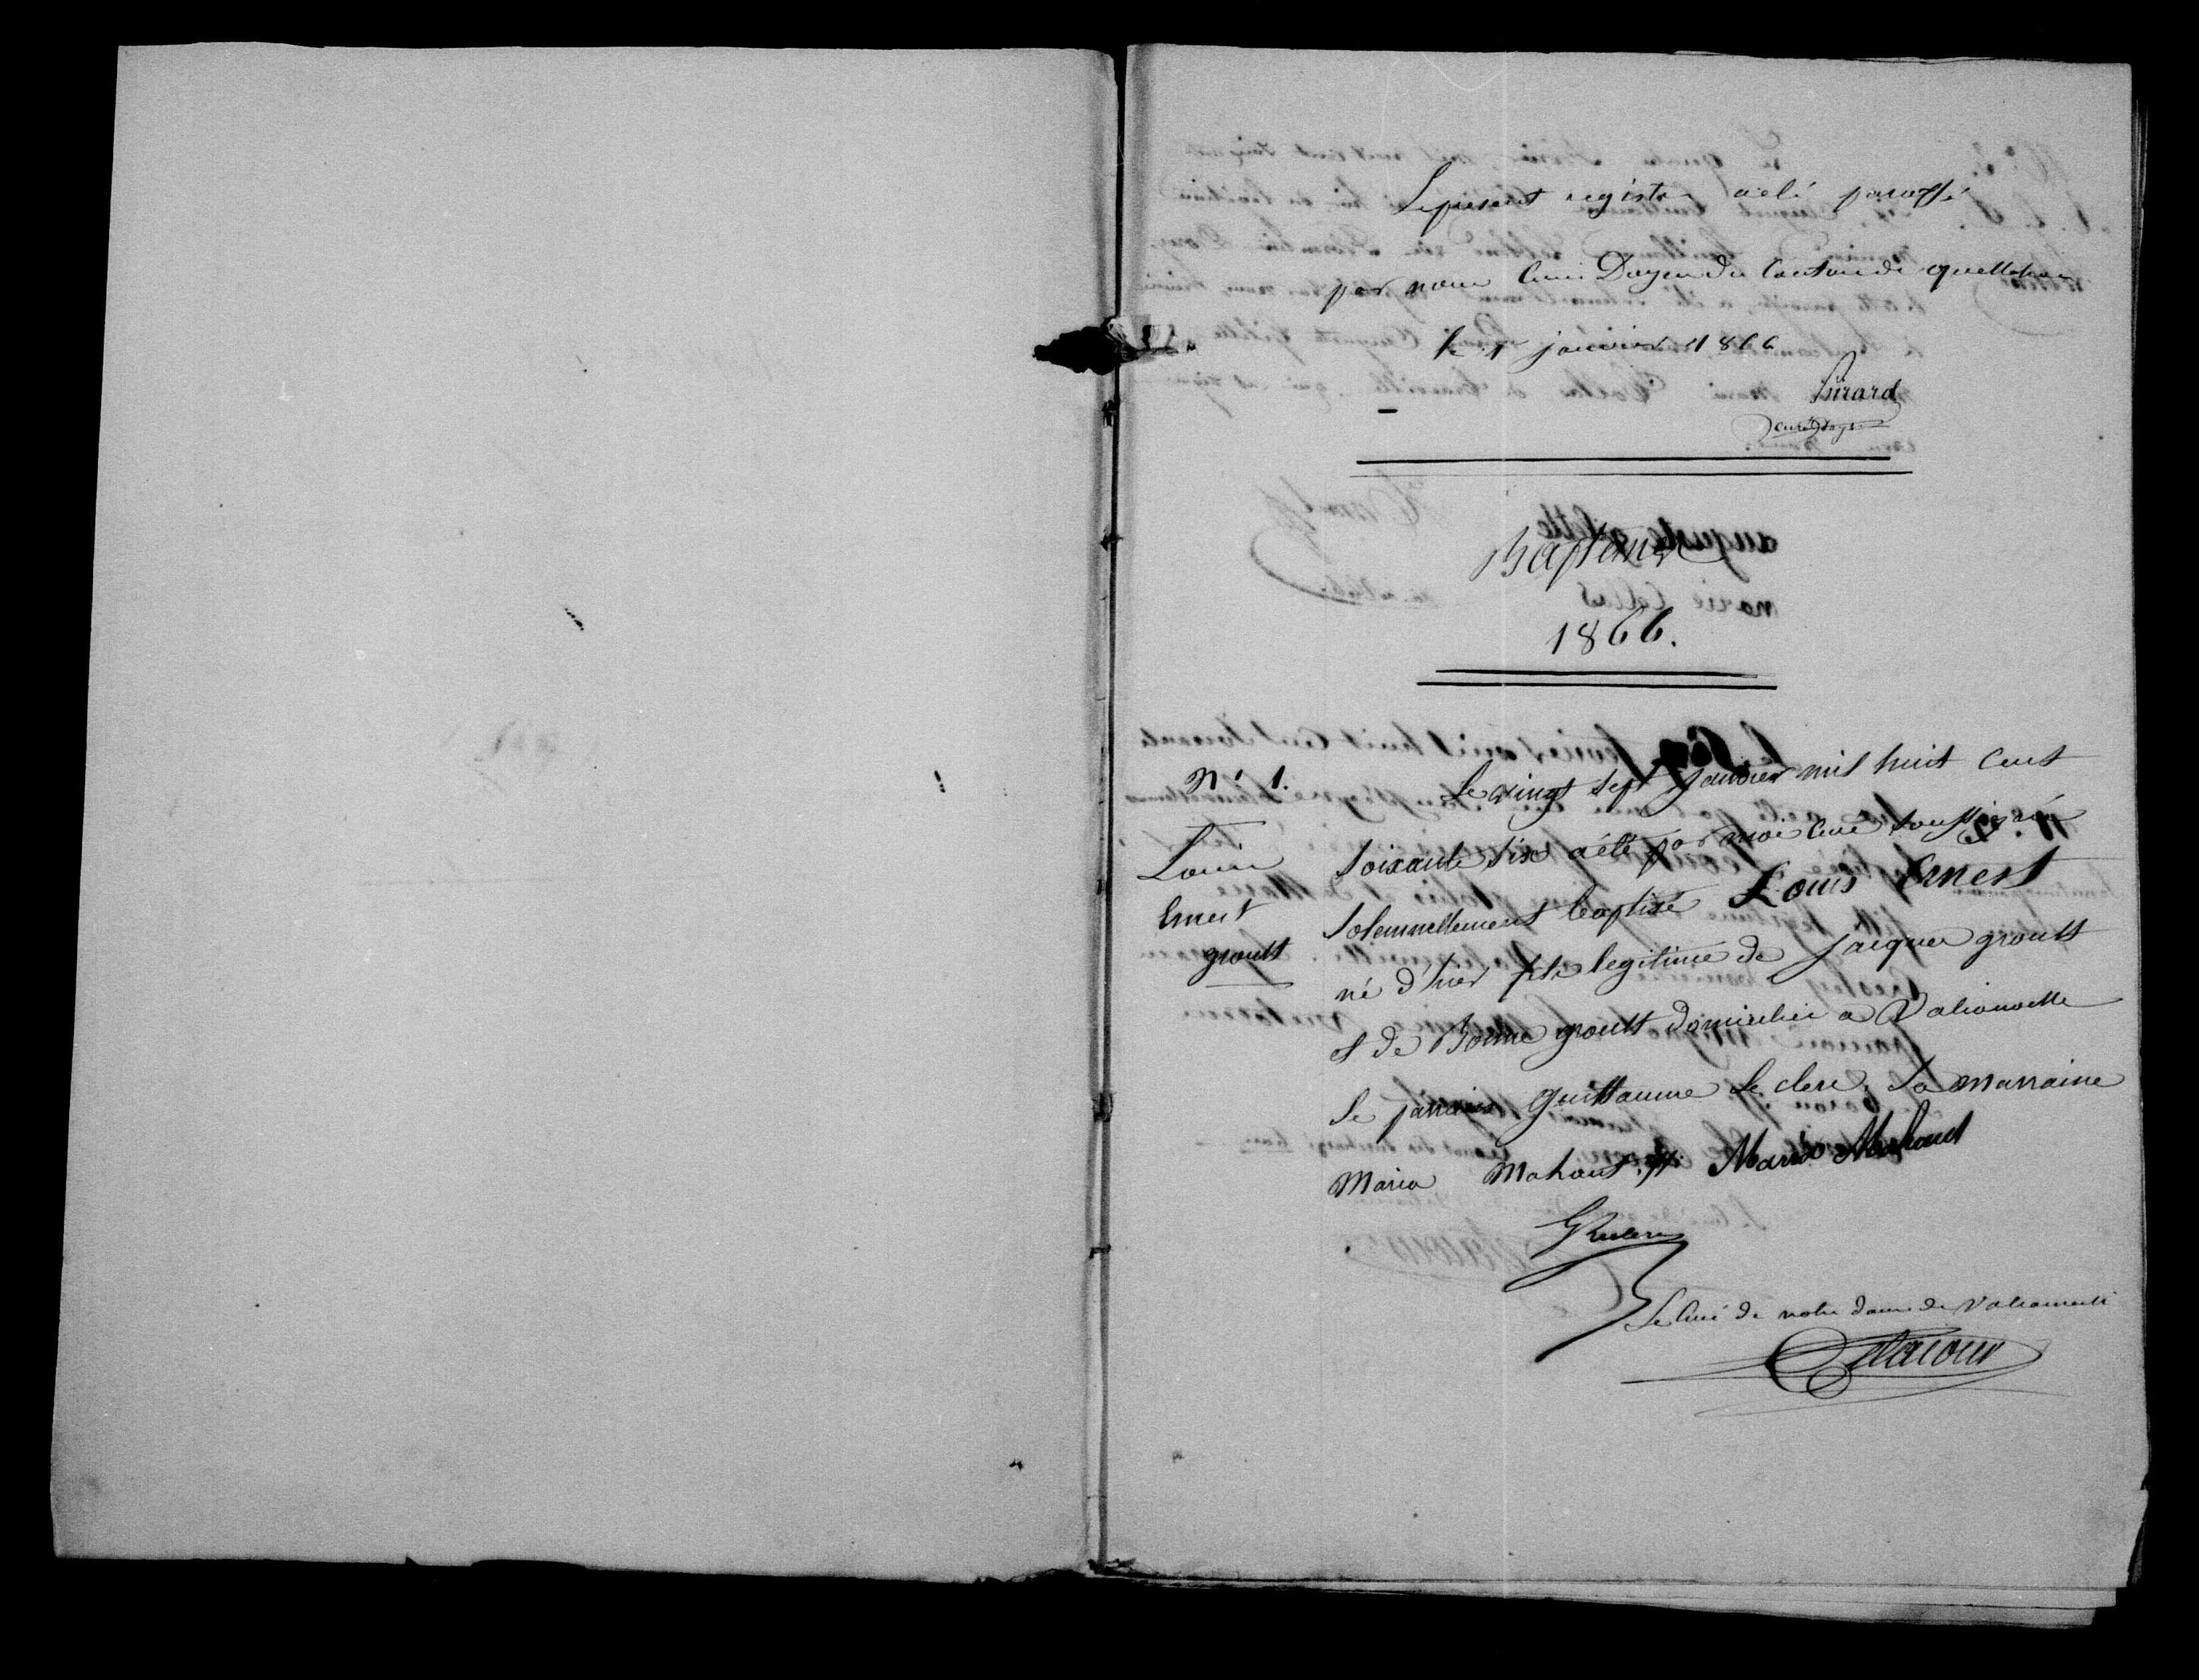 Le present registre a été paraffé
par nous Curé Doyen du Canton de quettehou
le 1r janvier 1866
curé doyen
Baptêmes
1866.
N° 1.
Louis
Ernest
groult
Le vingt sept janvier mil huit cent
soixante six a été par moi curé soussigné
solennellement baptisé Louis Ernest
né d'hier fils legitime de jacques groult
et de Bonne groult domiciliés a Valcanville
le parrain guillaume Le clerc. La marraine
Maria Mahaut. Maria Mahaut
GLeclerc
Le Curé de notre dame de Valcanville